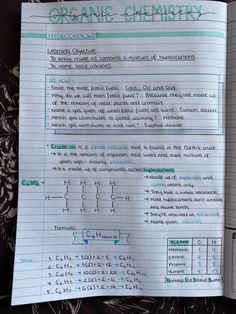 ORGANIC CHEMISTRY
HYDROCARBONS
Learning Objective
To know crude oil contains a mixture of hydrocarbons
To name basic alkanes
DO NOW:
Name the three fossil fuels: Coal, Oil and Gas
Why do we call them fossil fuels? Because they are made up
of the remains of dead plants and animals
Name a gas given off when fossil fuels are burnt: Carbon dioxide
Which gas contributes to global warming? Methane
Which gas contributes to acid rain? Sulphur dioxide
Crude oil is a finite mixture that is found in the Earth's crust
It is the remains of organisms that lived and died millions of
years ago - mainly plankton
It's made up of compounds called hydrocarbons
Made up of hydrogen and
carbon atoms only
They have a carbon backbone
Most hydrocarbons don't contain
any double bonds
They're described as saturated
Named alkanes
H H H H
H C C C C H
H H H H
Formula
TASK
ALKANE C H
Methane 1 4
Ethane 2 6
Propane 3 8
Butane 4 10